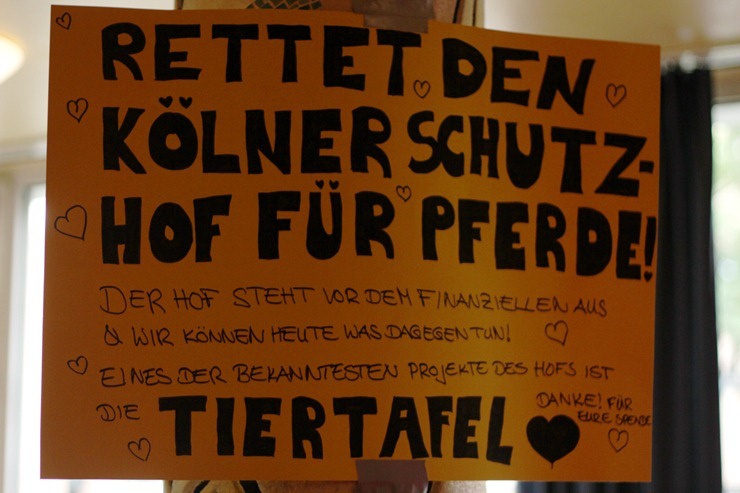 RETTET DEN
KÖLNER SCHUTZ-
HOF FÜR PFERDE!
DER HOF STEHT VOR DEM FINANZIELLEN AUS
& WIR KÖNNEN HEUTE WAS DAGEGEN TUN!
EINES DER BEKANNTESTEN PROJEKTE DES HOFS IST
DIE TIERTAFEL
DANKE! FÜR
EURE SPENDE